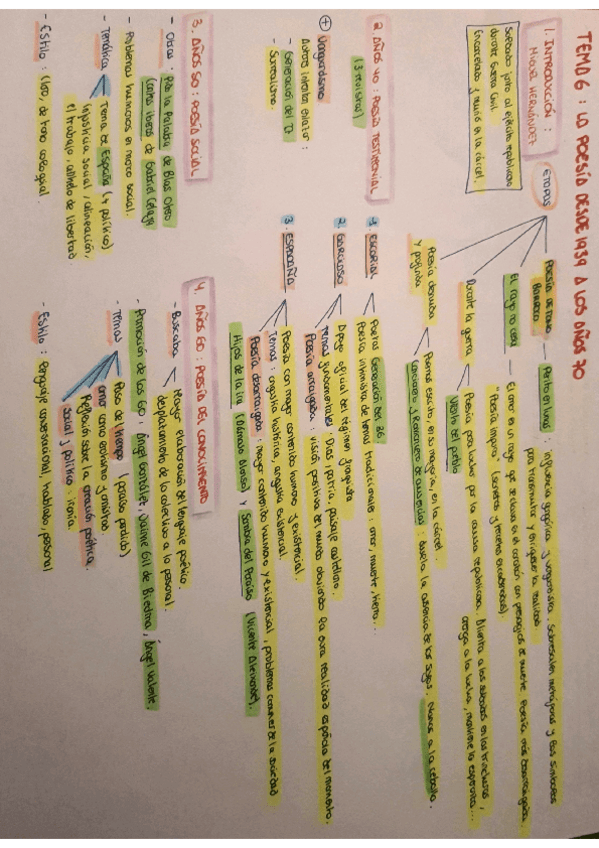 TEMA 6: LA POESÍA DESDE 1939 A LOS AÑOS 70
1. INTRODUCCIÓN:
MIGUEL HERNÁNDEZ
Soldado junto al ejército republicano
durante Guerra Civil.
Encarcelado y murió en la cárcel.
ETAPAS
POESÍA DE TONO
BARROCO
Perito en lunas: influencia gongorina y vanguardista. Sobresalen metáforas y los símbolos
para transmutar y enriquecer la realidad.
El rayo no cesa
El amor es un rayo que se clava en el corazón con presagios de muerte. Poesía más desarraigada,
"Poesía impura" (sonetos y tercetos encadenados)
Durante la guerra
Poesía para luchar por la causa republicana. Alienta a los soldados en las trincheras,
arenga a la lucha, mantiene la esperanza...
Viento del pueblo
Poesía desnuda
y profunda
Poemas escritos, en su mayoría, en la cárcel.
Cancionero y Romancero de ausencias: duelo la ausencia de los suyos. Nanas a la cebolla.
2. AÑOS 40: POESÍA TESTIMONIAL
(3 revistas)
1. ESCORIAL
Poetas Generación del 36
Poesía intimista de temas tradicionales: amor, muerte, tierra...
2. GARCILASO
Apego oficial del régimen franquista
Temas fundamentales: Dios, patria, paisaje castellano.
Poesía arraigada: visión positiva del mundo obviando la dura realidad española del momento.
3. ESPADAÑA
Poesía con mayor contenido humano y existencial.
Temas: angustia histórica, angustia existencial.
Poesía desarraigada: mayor contenido humano y existencial, problemas comunes de la sociedad
Hijos de la ira (Dámaso Alonso) y Sombra del Paraíso (Vicente Aleixandre).
+ Vanguardismo
Autores intentan enlazar:
- Generación del 27
- Surrealismo.
3. AÑOS 50: POESÍA SOCIAL
- Obras: Pido la Palabra de Blas Otero
Cantos iberos de Gabriel Celaya
- Problemas humanos en marco social.
- Temática
Tema de España (+ político)
Injusticia social, alineación,
el trabajo, anhelo de libertad
- Estilo: claro, de tono coloquial.
4. AÑOS 60: POESÍA DEL CONOCIMIENTO
- Buscaba
Mayor elaboración del lenguaje poético.
desplazamiento de lo colectivo a lo personal.
- Promoción de los 60: Ángel González, Jaime Gil de Biedma, Ángel Valente,
- Temas
Paso de tiempo (paraíso perdido)
amor como erotismo y amistad.
Reflexión sobre la creación poética.
social y político: ironía.
- Estilo: lenguaje conversacional, hablado, personal